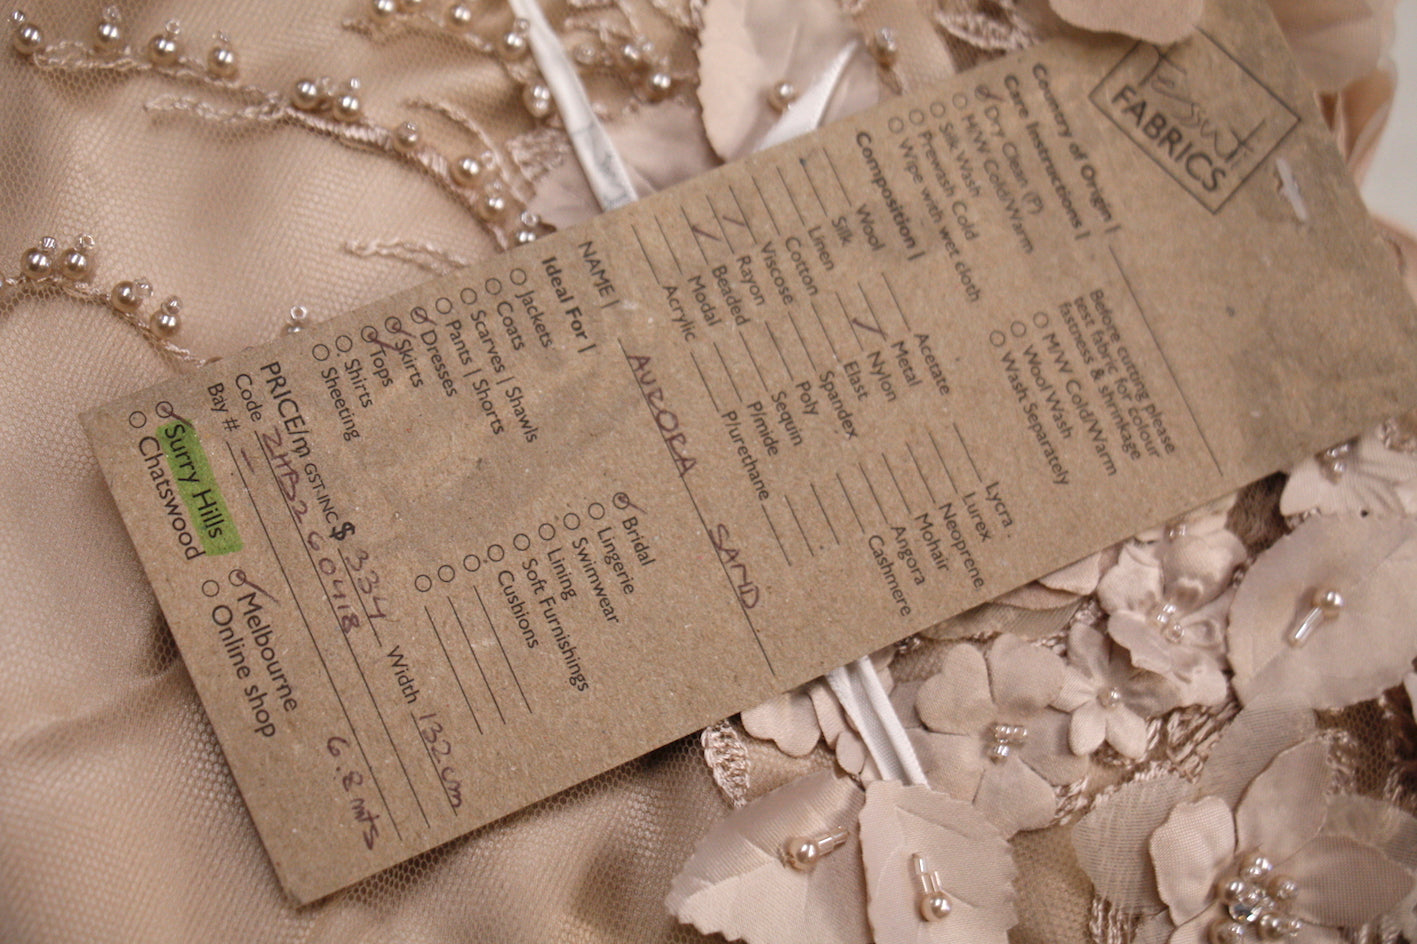 Tessuti
FABRICS
Country of Origin |
Care Instructions |
Dry Clean (P)
M/W Cold/Warm
Silk Wash
Prewash Cold
Wipe with wet cloth
Before cutting please
test fabric for colour
fastness & shrinkage
M/W Cold/Warm
Wool Wash
Wash Separately
Composition |
Wool Acetate Lycra
Silk Metal Lurex
Linen Nylon Neoprene
Cotton Elast Mohair
Viscose Spandex Angora
Rayon Poly Cashmere
Beaded Sequin
Modal P/mide
Acrylic P/urethane
NAME | AURORA SAND
Ideal For |
Jackets Bridal
Coats Lingerie
Scarves | Shawls Swimwear
Pants | Shorts Lining
Dresses Soft Furnishings
Skirts Cushions
Tops
Shirts
Sheeting
PRICE/m GST-INC $ 334 Width 132cm
Code 2HB260418
Bay # – 6.8 mts
Surry Hills Melbourne
Chatswood Online shop